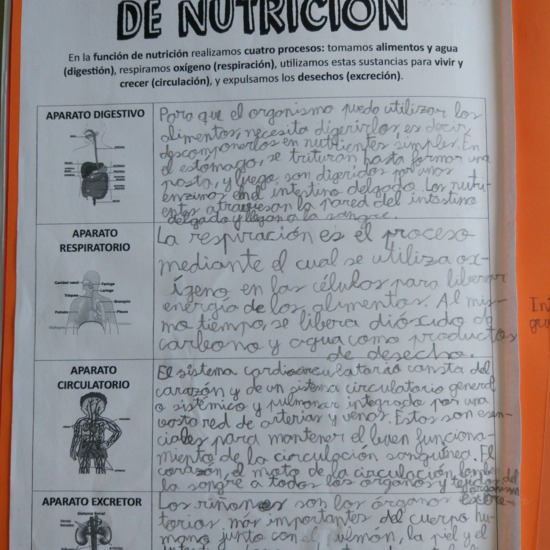 DE NUTRICIÓN
En la función de nutrición realizamos cuatro procesos: tomamos alimentos y agua
(digestión), respiramos oxígeno (respiración), utilizamos estas sustancias para vivir y
crecer (circulación), y expulsamos los desechos (excreción).
APARATO DIGESTIVO
Para que el organismo pueda utilizar los
alimentos, necesita digerirlos, es decir
descomponerlos en nutrientes simples. En
el estómago, se trituran hasta formar una
pasta, y luego son digeridos por unos
enzimas en el intestino delgado. Los nutri-
entes atraviesan la pared del intestino
delgado y llegan a la sangre.
APARATO
RESPIRATORIO
La respiración es el proceso
mediante el cual se utiliza ox-
ígeno en las células para liberar
energía de los alimentos. Al mis-
mo tiempo, se libera dióxido de
carbono y agua como productos
de desecho.
APARATO
CIRCULATORIO
El sistema cardiocirculatorio consta del
corazón y de un sistema circulatorio general
o sistémico y pulmonar integrado por una
vasta red de arterias y venas. Estos son esen-
ciales para mantener el buen funciona-
miento de la circulación sanguínea. El
corazón, el motor de la circulación bombea
la sangre a todos los órganos y tejidos del
organismo
APARATO EXCRETOR
Los riñones son los órganos excre-
torios, más importantes del cuerpo hu-
mano junto con el pulmón, la piel y el